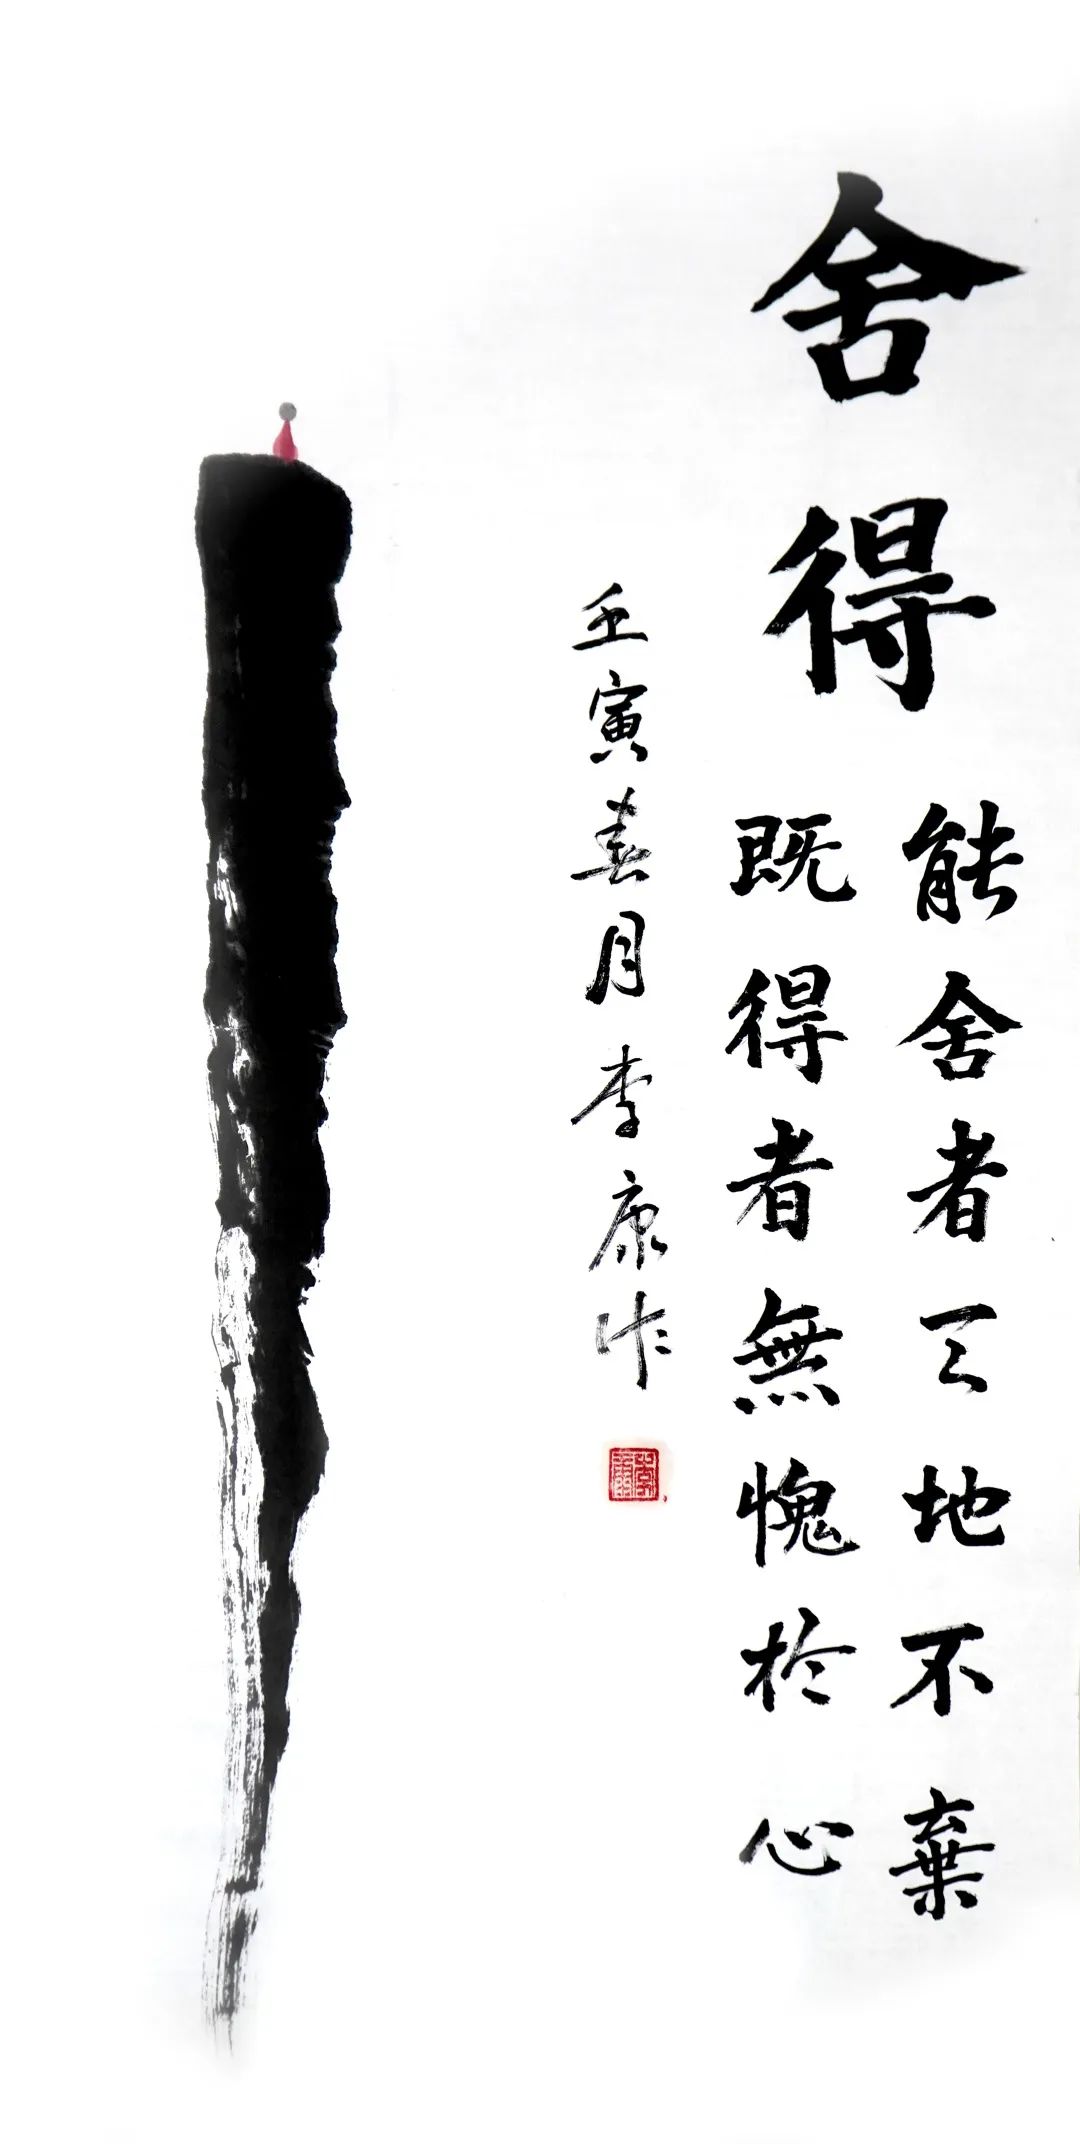 舍得
能舍者天地不棄
既得者無愧於心
壬寅春月李康作